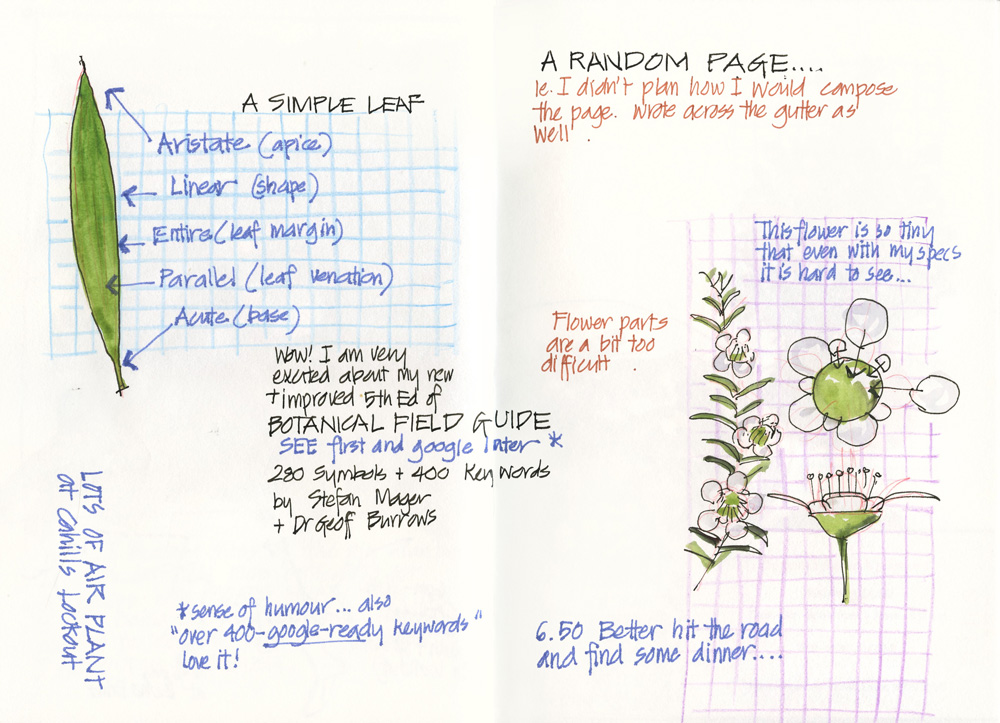 A SIMPLE LEAF
Aristate (apice)
Linear (shape)
Entire (leaf margin)
Parallel (leaf venation)
Acute (base)
Wow! I am very
excited about my new
+ improved 5th Ed of
BOTANICAL FIELD GUIDE
SEE first and google later *
280 Symbols + 400 Key words
by Stefan Mager
+ Dr Geoff Burrows
LOTS OF AIR PLANT
at Cahills Lookout
* sense of humour... also
"over 400-google-ready keywords"
love it!
A RANDOM PAGE....
ie. I didn't plan how I would compose
the page. Wrote across the gutter as
well.
This flower is so tiny
that even with my specs
it is hard to see...
Flower parts
are a bit too
difficult.
6.50 Better hit the road
and find some dinner....